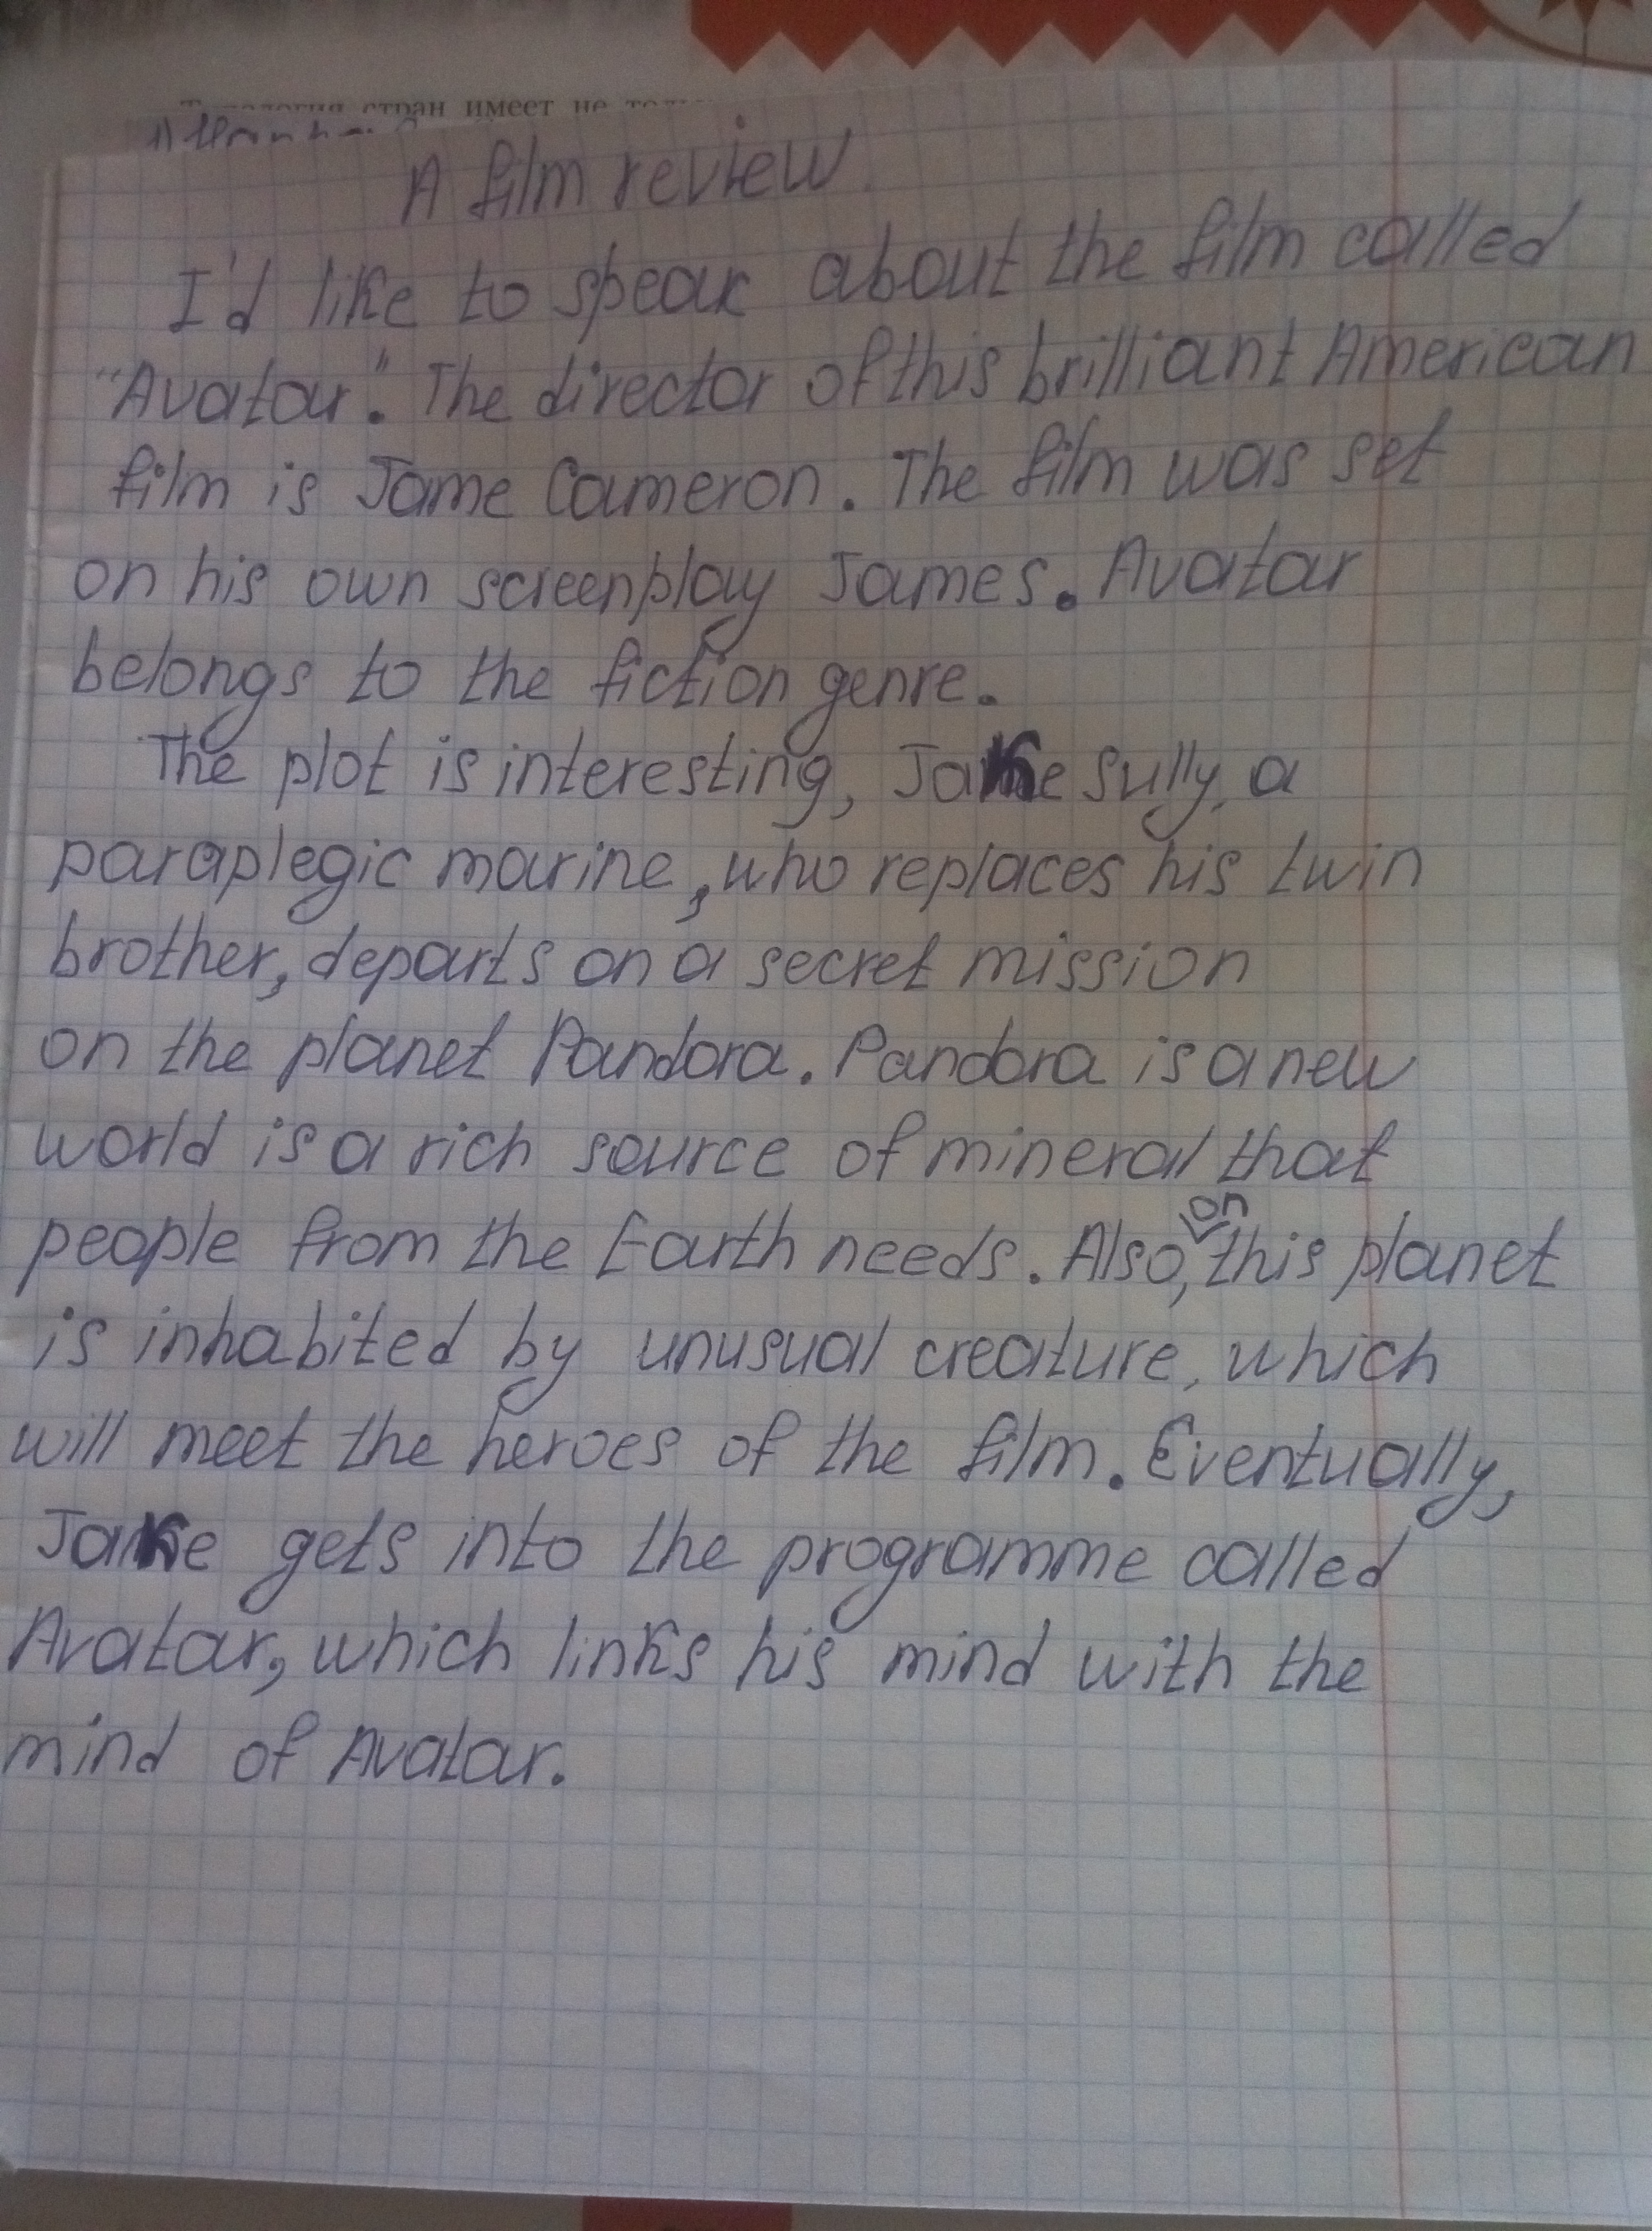 стран имеет не
A film review
I'd like to speak about the film called
"Avatar". The director of this brilliant American
film is Jame Cameron. The film was set
on his own screenplay James. Avatar
belongs to the fiction genre.
The plot is interesting, Jake Sully, a
paraplegic marine, who replaces his twin
brother, departs on a secret mission
on the planet Pandora. Pandora is a new
world is a rich source of mineral that
people from the Earth needs. Also, on this planet
is inhabited by unusual creature, which
will meet the heroes of the film. Eventually,
Jake gets into the programme called
Avatar, which links his mind with the
mind of Avatar.